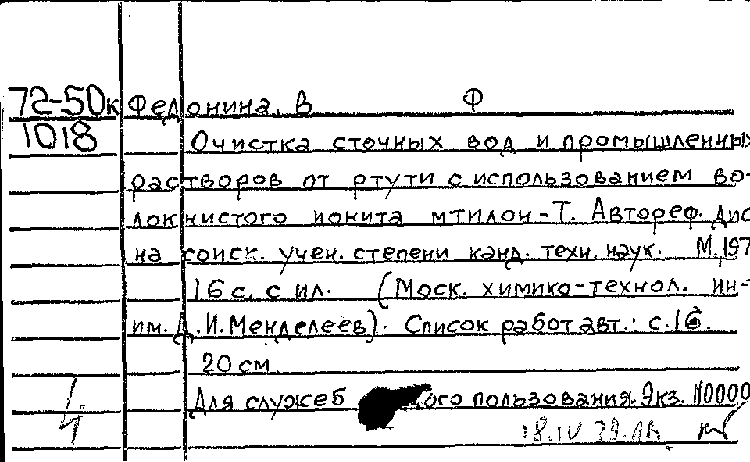 72-50к Федонина, В Ф
1018 Очистка сточных вод и промышленных
растворов от ртути с использованием во-
локнистого ионита мтилон-Т. Автореф. дис
на соиск. учен. степени канд. техн. наук. М, 197
16 с. с ил. (Моск. химико-технол. ин-
им. Д. И. Менделеев). Список работ авт.: с. 16.
20 см
Для служеб ого пользования. Экз. N0000